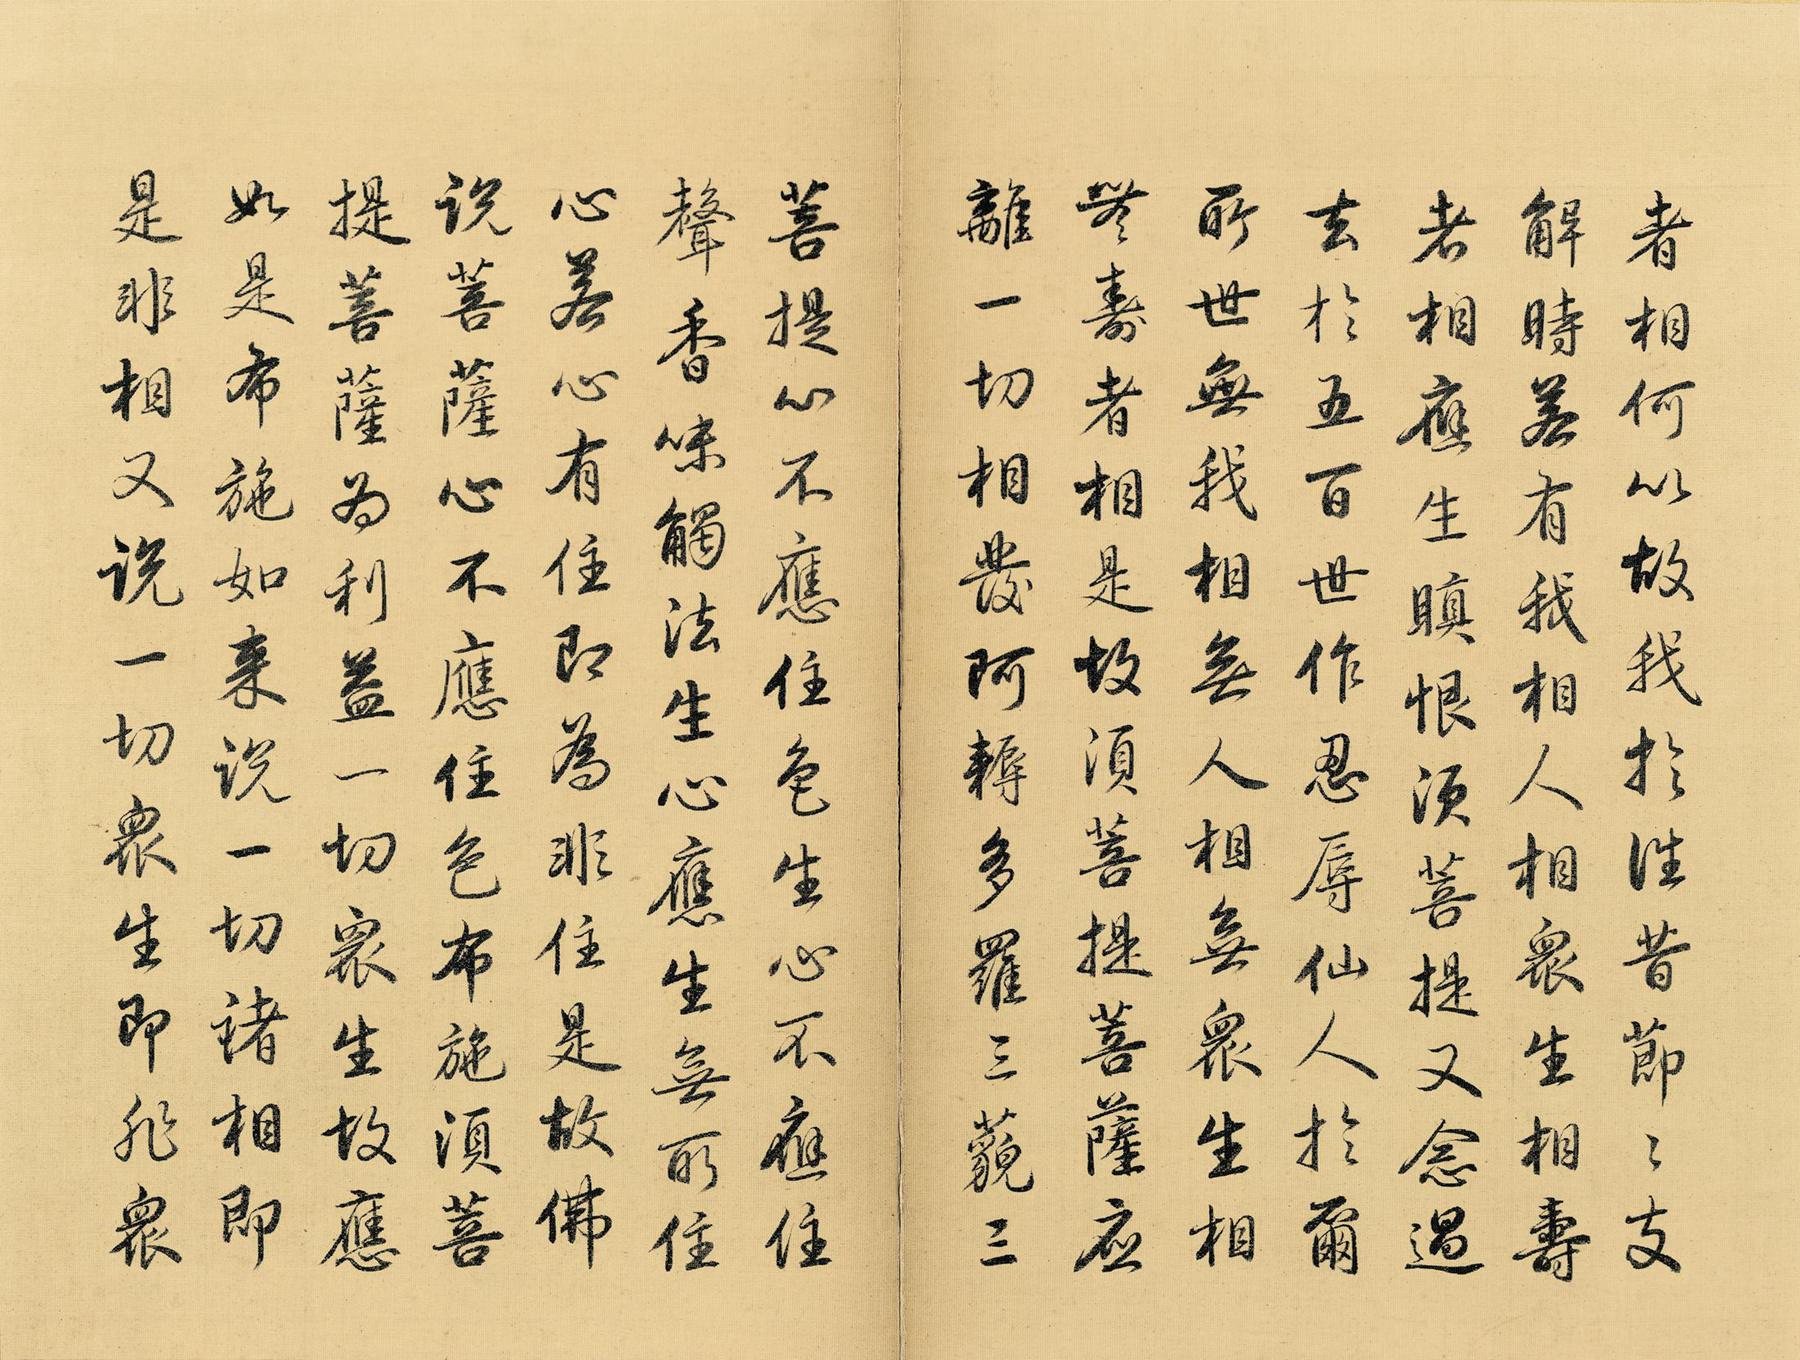 者相何以故我於往昔節〻支
解時若有我相人相衆生相壽
者相應生瞋恨須菩提又念過
去於五百世作忍辱仙人於爾
所世無我相無人相無衆生相
無壽者相是故須菩提菩薩應
離一切相發阿耨多羅三藐三
菩提心不應住色生心不應住
聲香味觸法生心應生無所住
心若心有住即為非住是故佛
说菩薩心不應住色布施須菩
提菩薩為利益一切衆生故應
如是布施如来说一切諸相即
是非相又说一切衆生即非衆